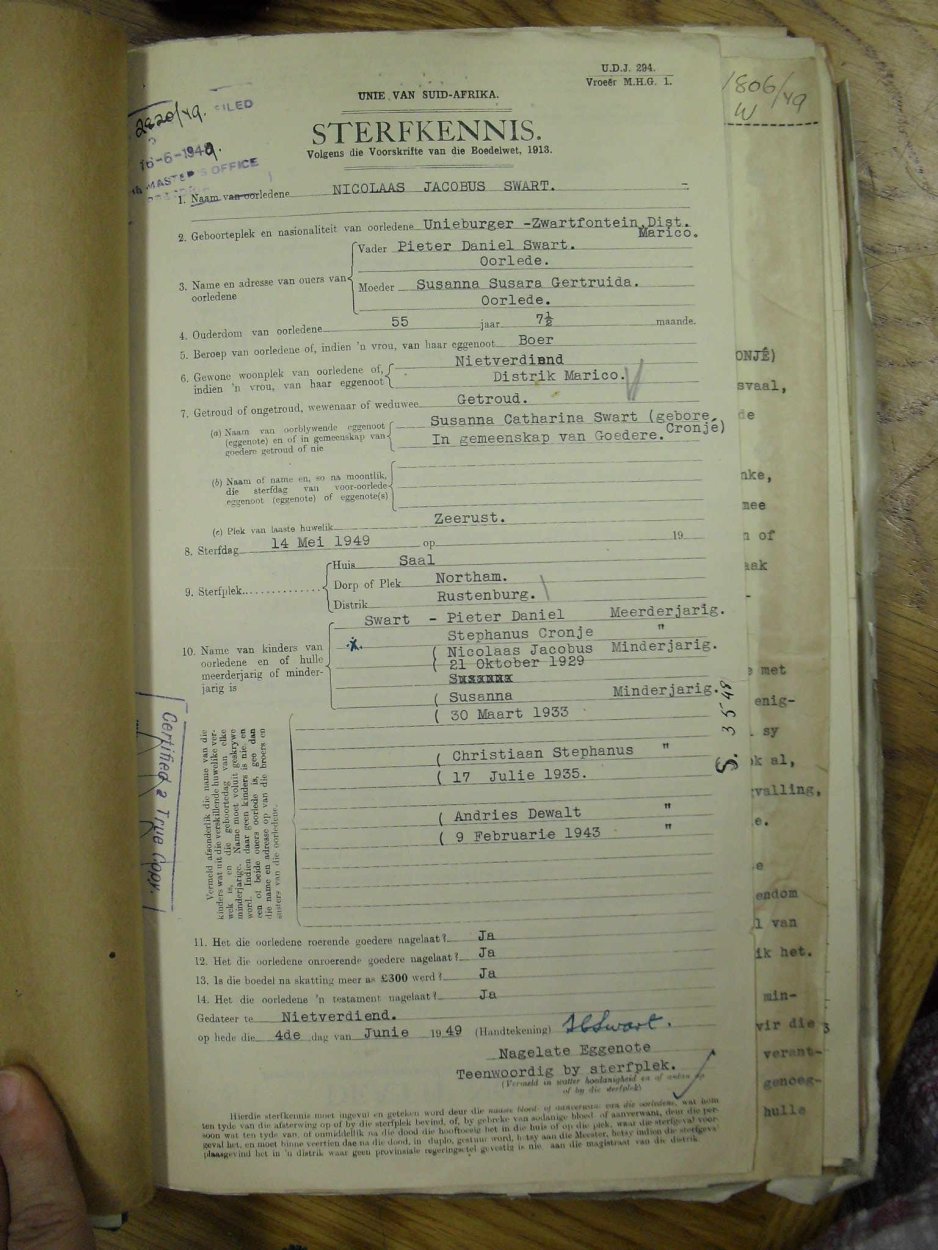 U.D.J. 294.
Vroeër M.H.G. 1.
1806/49
W
UNIE VAN SUID-AFRIKA.
2820/49. FILED
STERFKENNIS.
Volgens die Voorskrifte van die Boedelwet, 1913.
16-6-1949.
MASTER'S OFFICE
1. Naam van oorledene NICOLAAS JACOBUS SWART.
2. Geboorteplek en nasionaliteit van oorledene Unieburger -Zwartfontein, Dist.
Marico.
3. Name en adresse van ouers van oorledene
Vader Pieter Daniel Swart.
Oorlede.
Moeder Susanna Susara Gertruida.
Oorlede.
4. Ouderdom van oorledene 55 jaar 7½ maande.
5. Beroep van oorledene of, indien 'n vrou, van haar eggenoot Boer
6. Gewone woonplek van oorledene of, Nietverdiend
indien 'n vrou, van haar eggenoot Distrik Marico.
7. Getroud of ongetroud, wewenaar of weduwee Getroud.
(a) Naam van oorblywende eggenoot Susanna Catharina Swart (gebore
(eggenote) en of in gemeenskap van In gemeenskap van Goedere. Cronjé)
goedere getroud of nie
(b) Naam of name en, so na moontlik,
die sterfdag van voor-oorlede
eggenoot (eggenote) of eggenote(s)
(c) Plek van laaste huwelik Zeerust.
8. Sterfdag 14 Mei 1949 op 19
9. Sterfplek
Huis Saal
Dorp of Plek Northam.
Distrik Rustenburg.
10. Name van kinders van
oorledene en of hulle
meerderjarig of minder-
jarig is
Swart - Pieter Daniel Meerderjarig.
x. Stephanus Cronje "
( Nicolaas Jacobus Minderjarig.
( 21 Oktober 1929
Susanna
( Susanna Minderjarig.
( 30 Maart 1933
( Christiaan Stephanus "
( 17 Julie 1935.
( Andries Dewalt "
( 9 Februarie 1943 "
S. 3548
Certified a True Copy.
Vermeld afsonderlik die name van die
kinders wat uit die verskillende huwelike ver-
wek is, en die geboortedag van elke
minderjarige. Name moet voluit geskrywe
word. Indien daar geen kinders is nie, en
een of beide ouers oorlede is, gee dan
die name en adresse op van die broers en
susters van die oorledene.
11. Het die oorledene roerende goedere nagelaat? Ja
12. Het die oorledene onroerende goedere nagelaat? Ja
13. Is die boedel na skatting meer as £300 werd? Ja
14. Het die oorledene 'n testament nagelaat? Ja
Gedateer te Nietverdiend.
op hede die 4de dag van Junie 1949 (Handtekening) SCSwart.
Nagelate Eggenote
Teenwoordig by sterfplek.
(Vermeld in watter hoedanigheid en of anders op
of by die sterfplek)
Hierdie sterfkennis moet ingevul en geteken word deur die naaste bloed- of aanverwant van die oorledene, wat hom
ten tyde van die afsterwing op of by die sterfplek bevind, of, by gebreke van sodanige bloed- of aanverwant, deur die per-
soon wat ten tyde van of onmiddellik na die dood die hooftoesig het in die huis of op die plek, waar die sterfgeval voor-
geval het, en moet binne veertien dae na die dood, in duplo, gestuur word, hetsy aan die Meester, hetsy indien die sterfgeval
plaasgevind het in 'n distrik waar geen provinsiale regeringsetel gevestig is nie, aan die magistraat van die distrik.
ONJÉ)
svaal,
de
nke,
mee
n of
aak
e met
enig-
sy
ok al,
rvalling,
e.
e
endom
l van
ik het.
min-
vir die
verant-
genoeg-
hulle